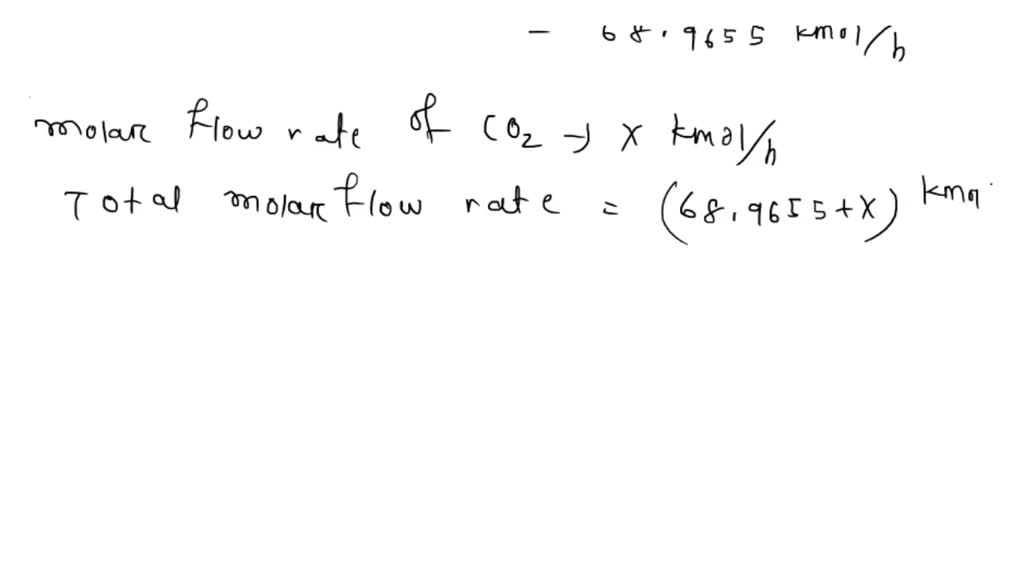 - 68.9655 kmol/h
molar flow rate of CO2 → x kmol/h
Total molar flow rate = (68.9655+x) kmo